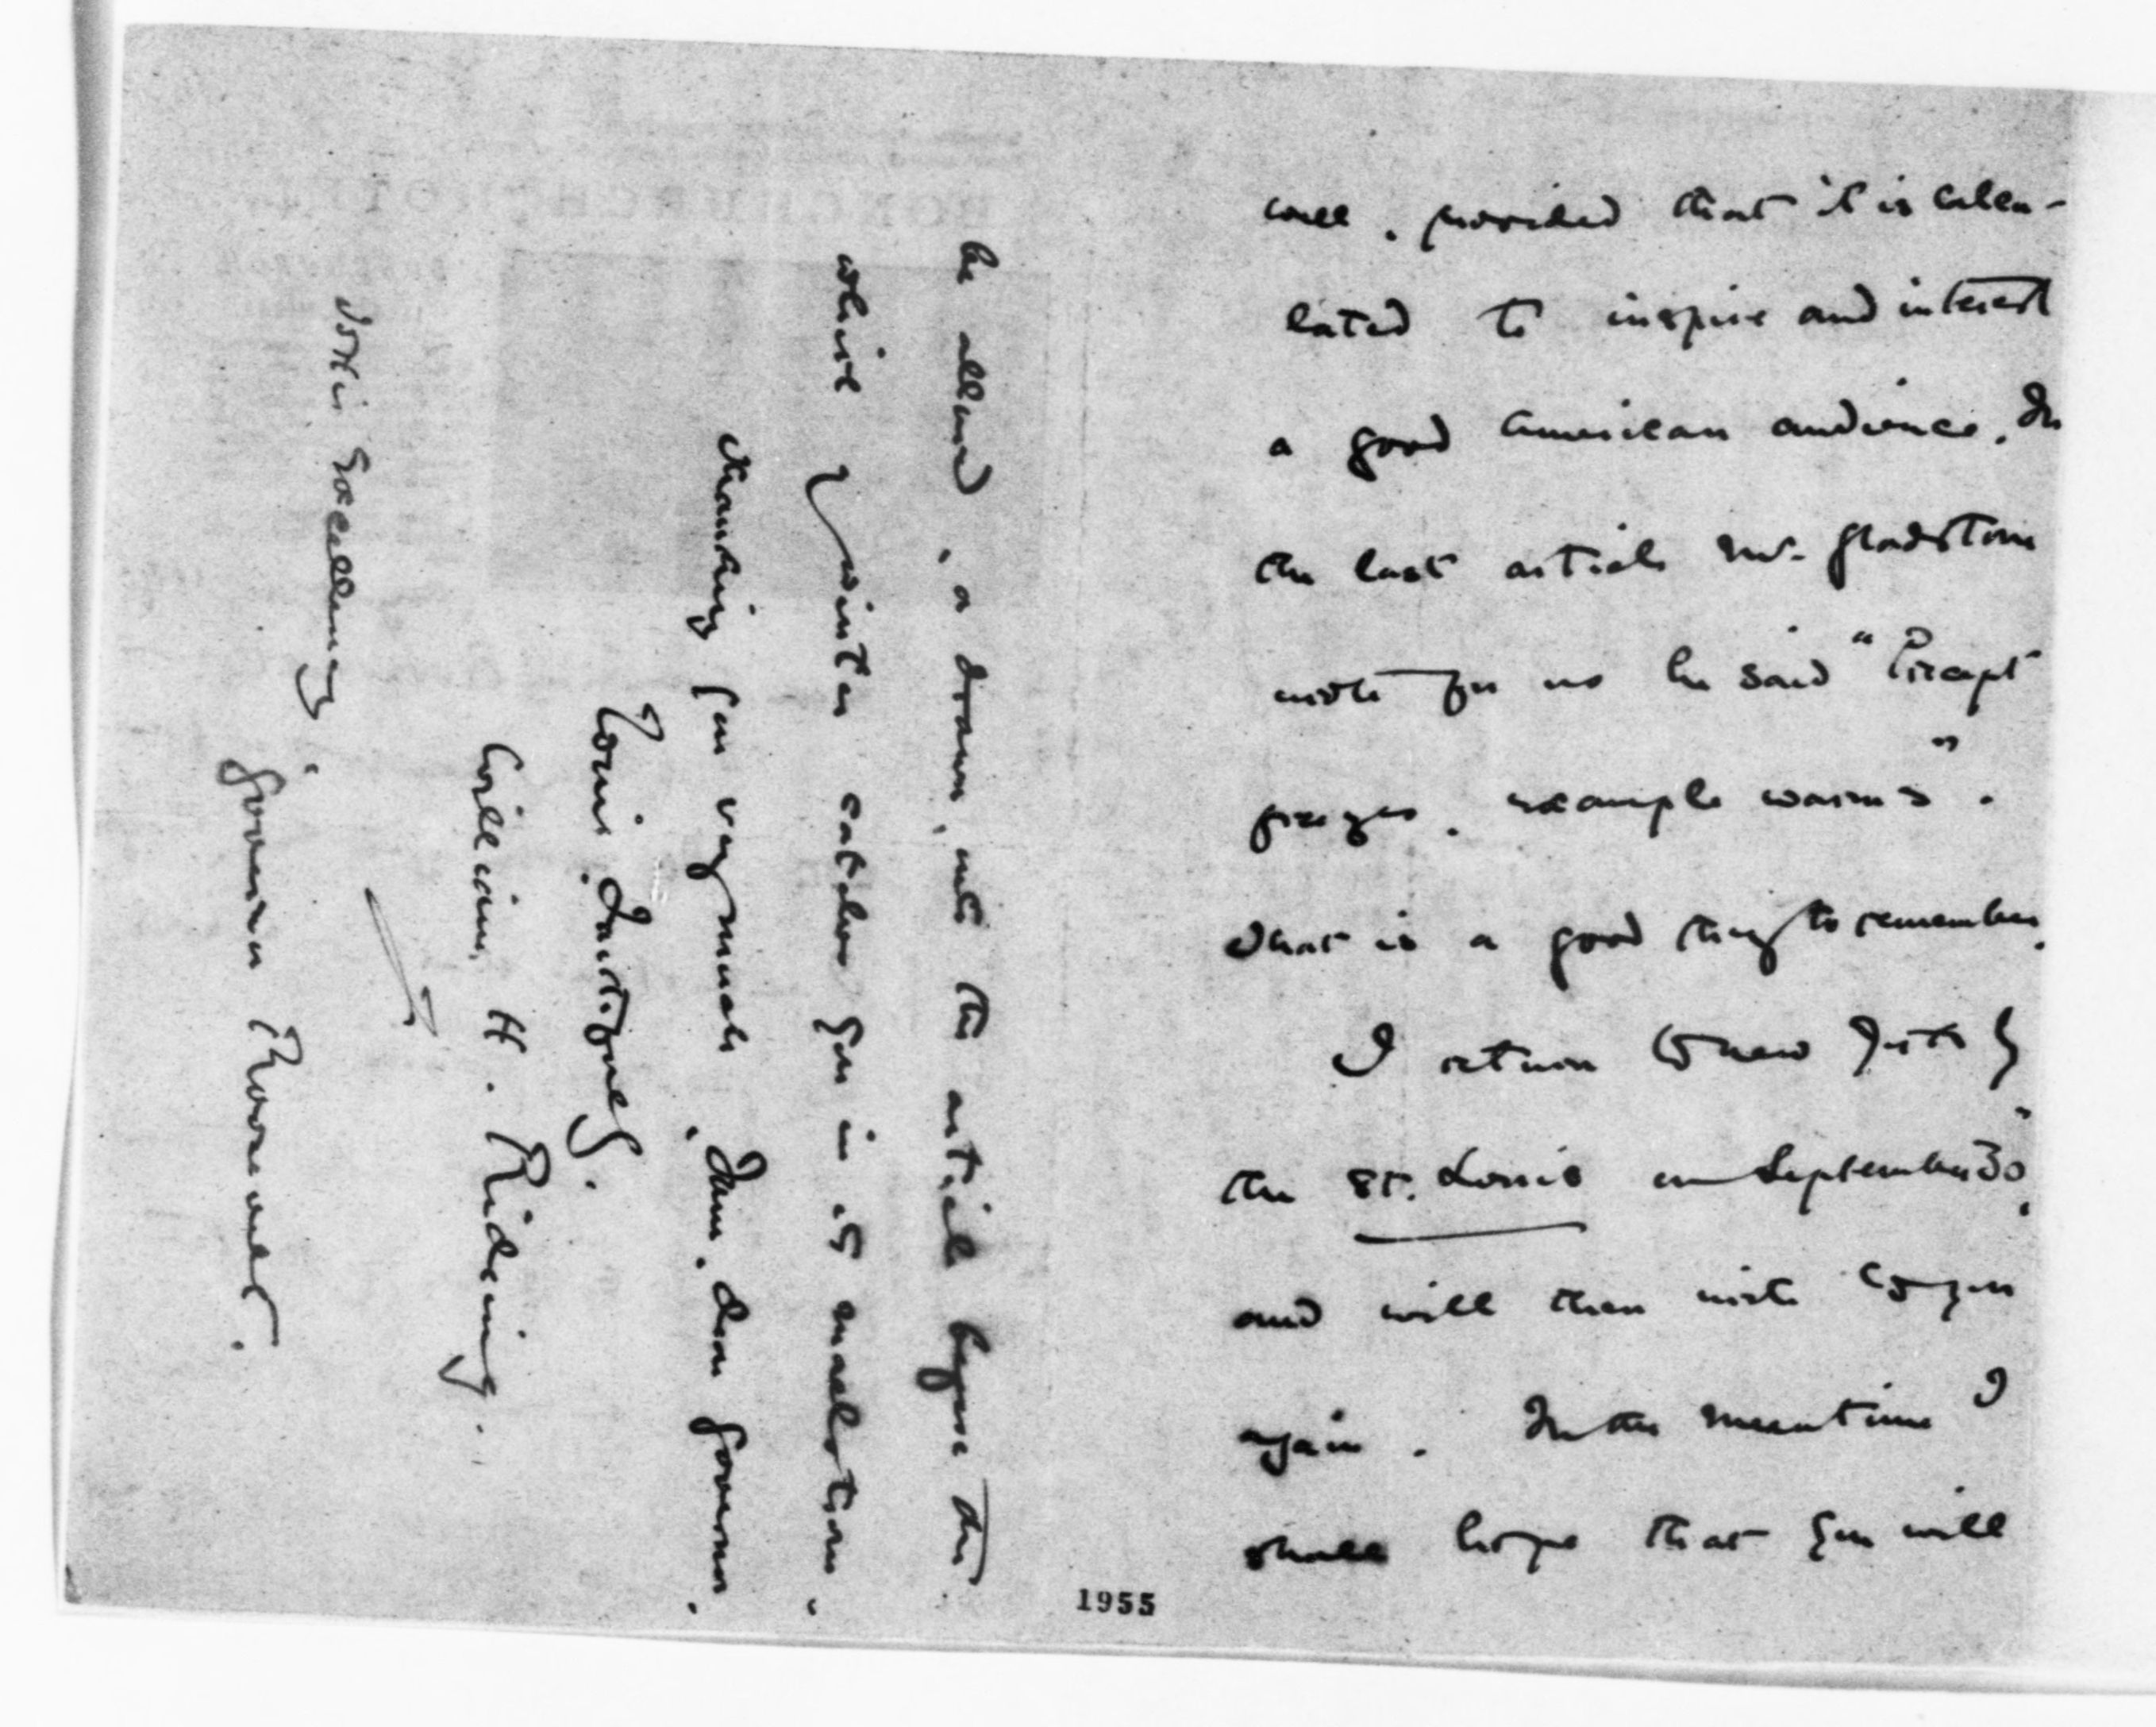 well, provided that it is calcu-
lated to inspire and interest
a good American audience. In
the last article Mr. Gladstone
wrote for us he said "Precept
freezes, example warms".
That is a good thing to remember.
I return to New York by
the St. Louis on September 30,
and will then write to you
again. In the meantime I
shall hope that you will
be allured, or drawn, into the article before the
whirl of winter catches you in its maelstrom.
Thanking you very much, I am, dear Governor,
Yours faithfully,
William H. Rideing.
To His Excellency,
Governor Roosevelt.
1955